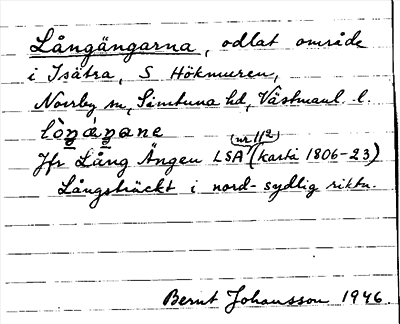 Långängarna, odlat område
i Isätra, S Hökmuren,
Norrby sn, Simtuna hd, Västmanl. l.
lòŋæŋane
nr 112
Jfr Lång Ängen LSA (karta 1806-23)
Långsträckt i nord-sydlig riktn.
Bernt Johansson 1946.